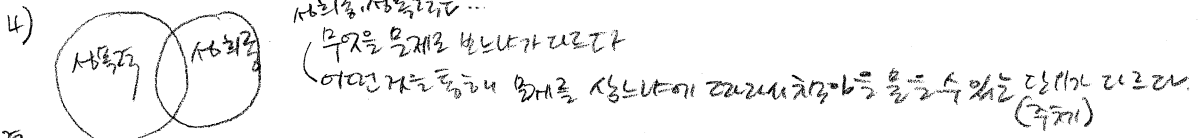 4)
성폭력 성희롱
성희롱, 성폭력은...
무엇을 문제로 보느냐가 다르다
어떤 것을 통해 문제를 삼느냐에 따라서 책임을 물을 수 있는 단위가 다르다.
(주체)